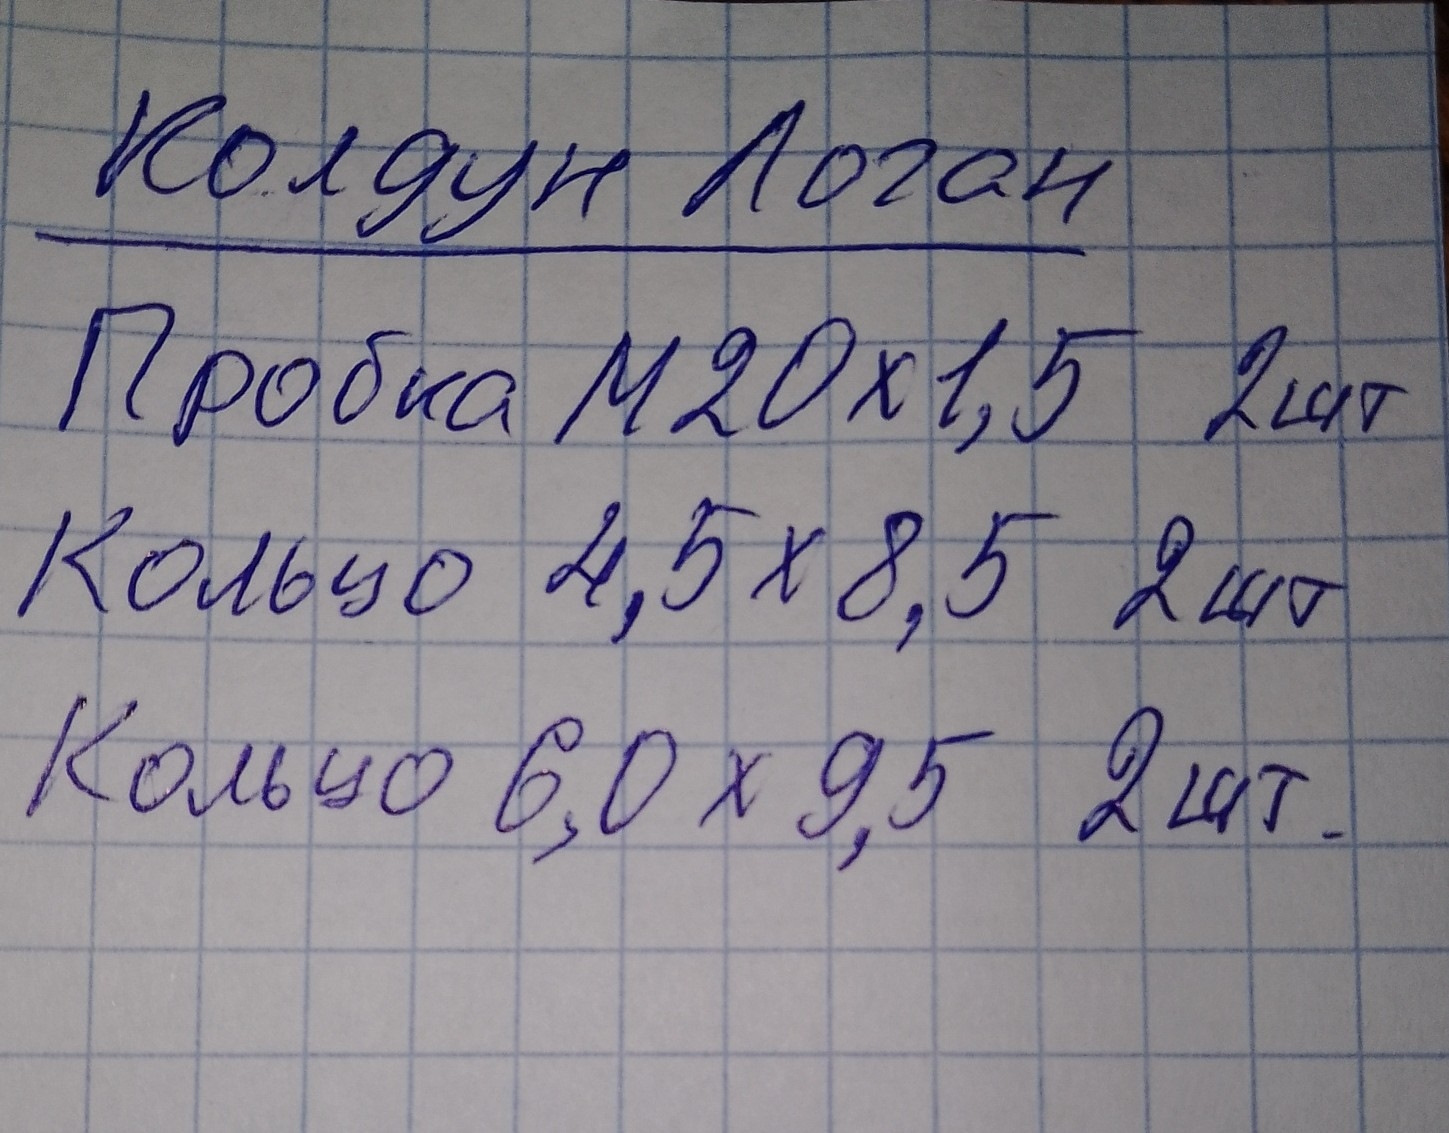 Колдун Логан
Пробка М20х1,5 2шт
Кольцо 4,5х8,5 2шт
Кольцо 6,0х9,5 2шт.